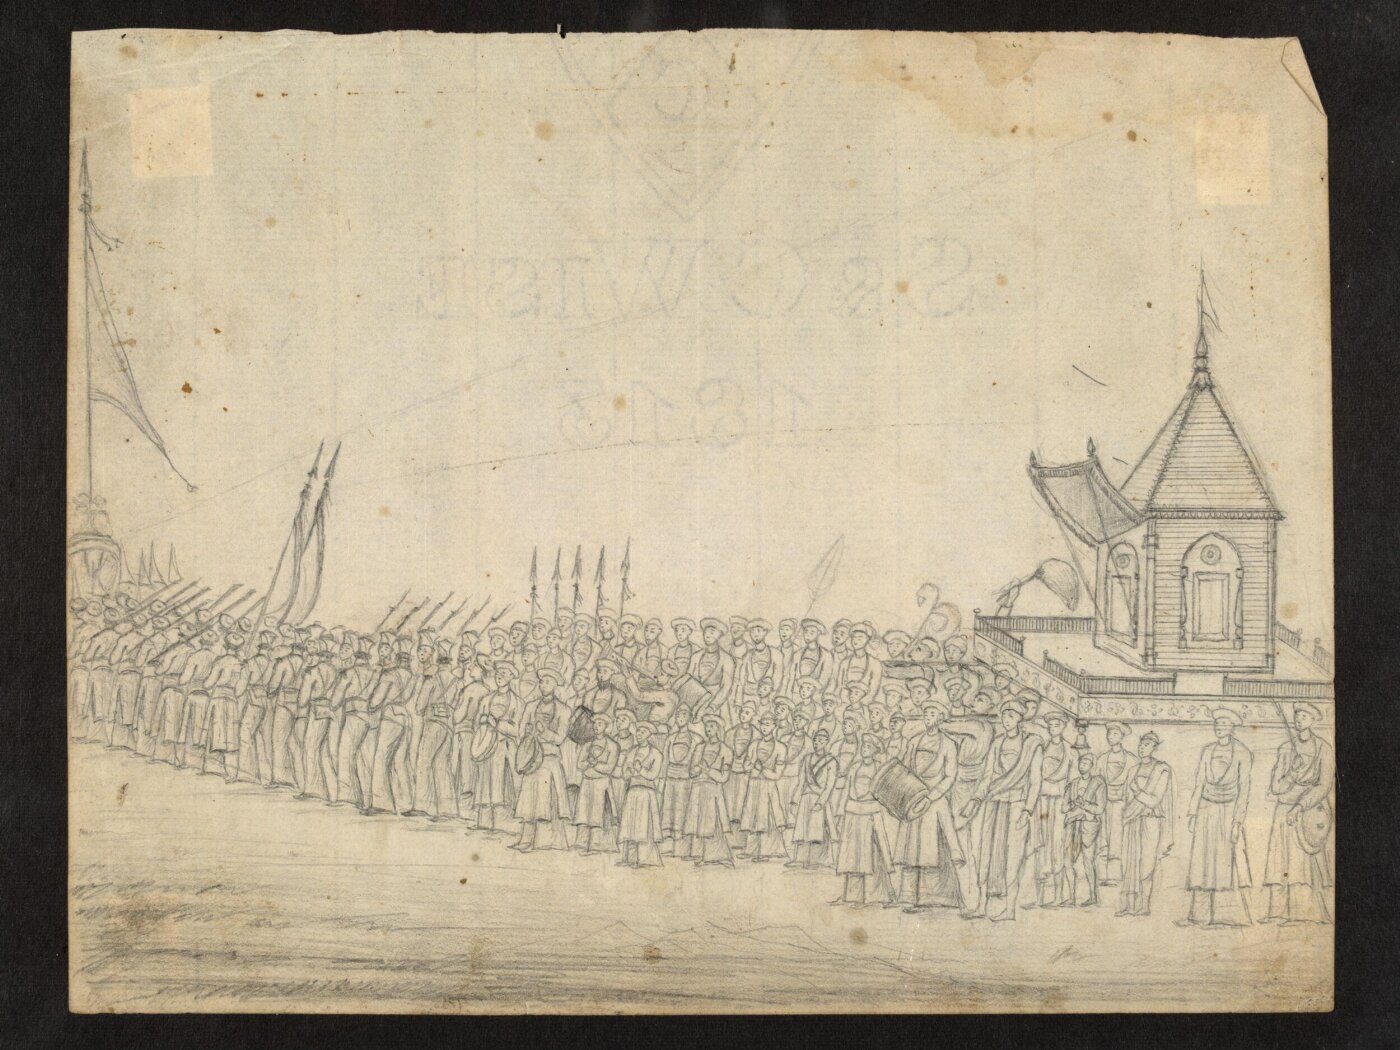 S & C WISE
1813